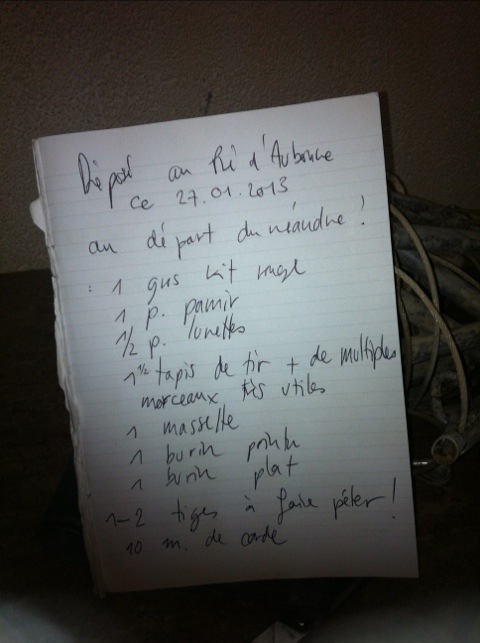 Déposé au Pré d'Aubonne
ce 27.01.2013
au départ du méandre !
: 1 gus kit rouge
1 p. pamir
1/2 p. lunettes
1 1/2 tapis de tir + de multiples
morceaux très utiles
1 massette
1 burin pointu
1 burin plat
1-2 tiges à faire péter !
10 m. de corde